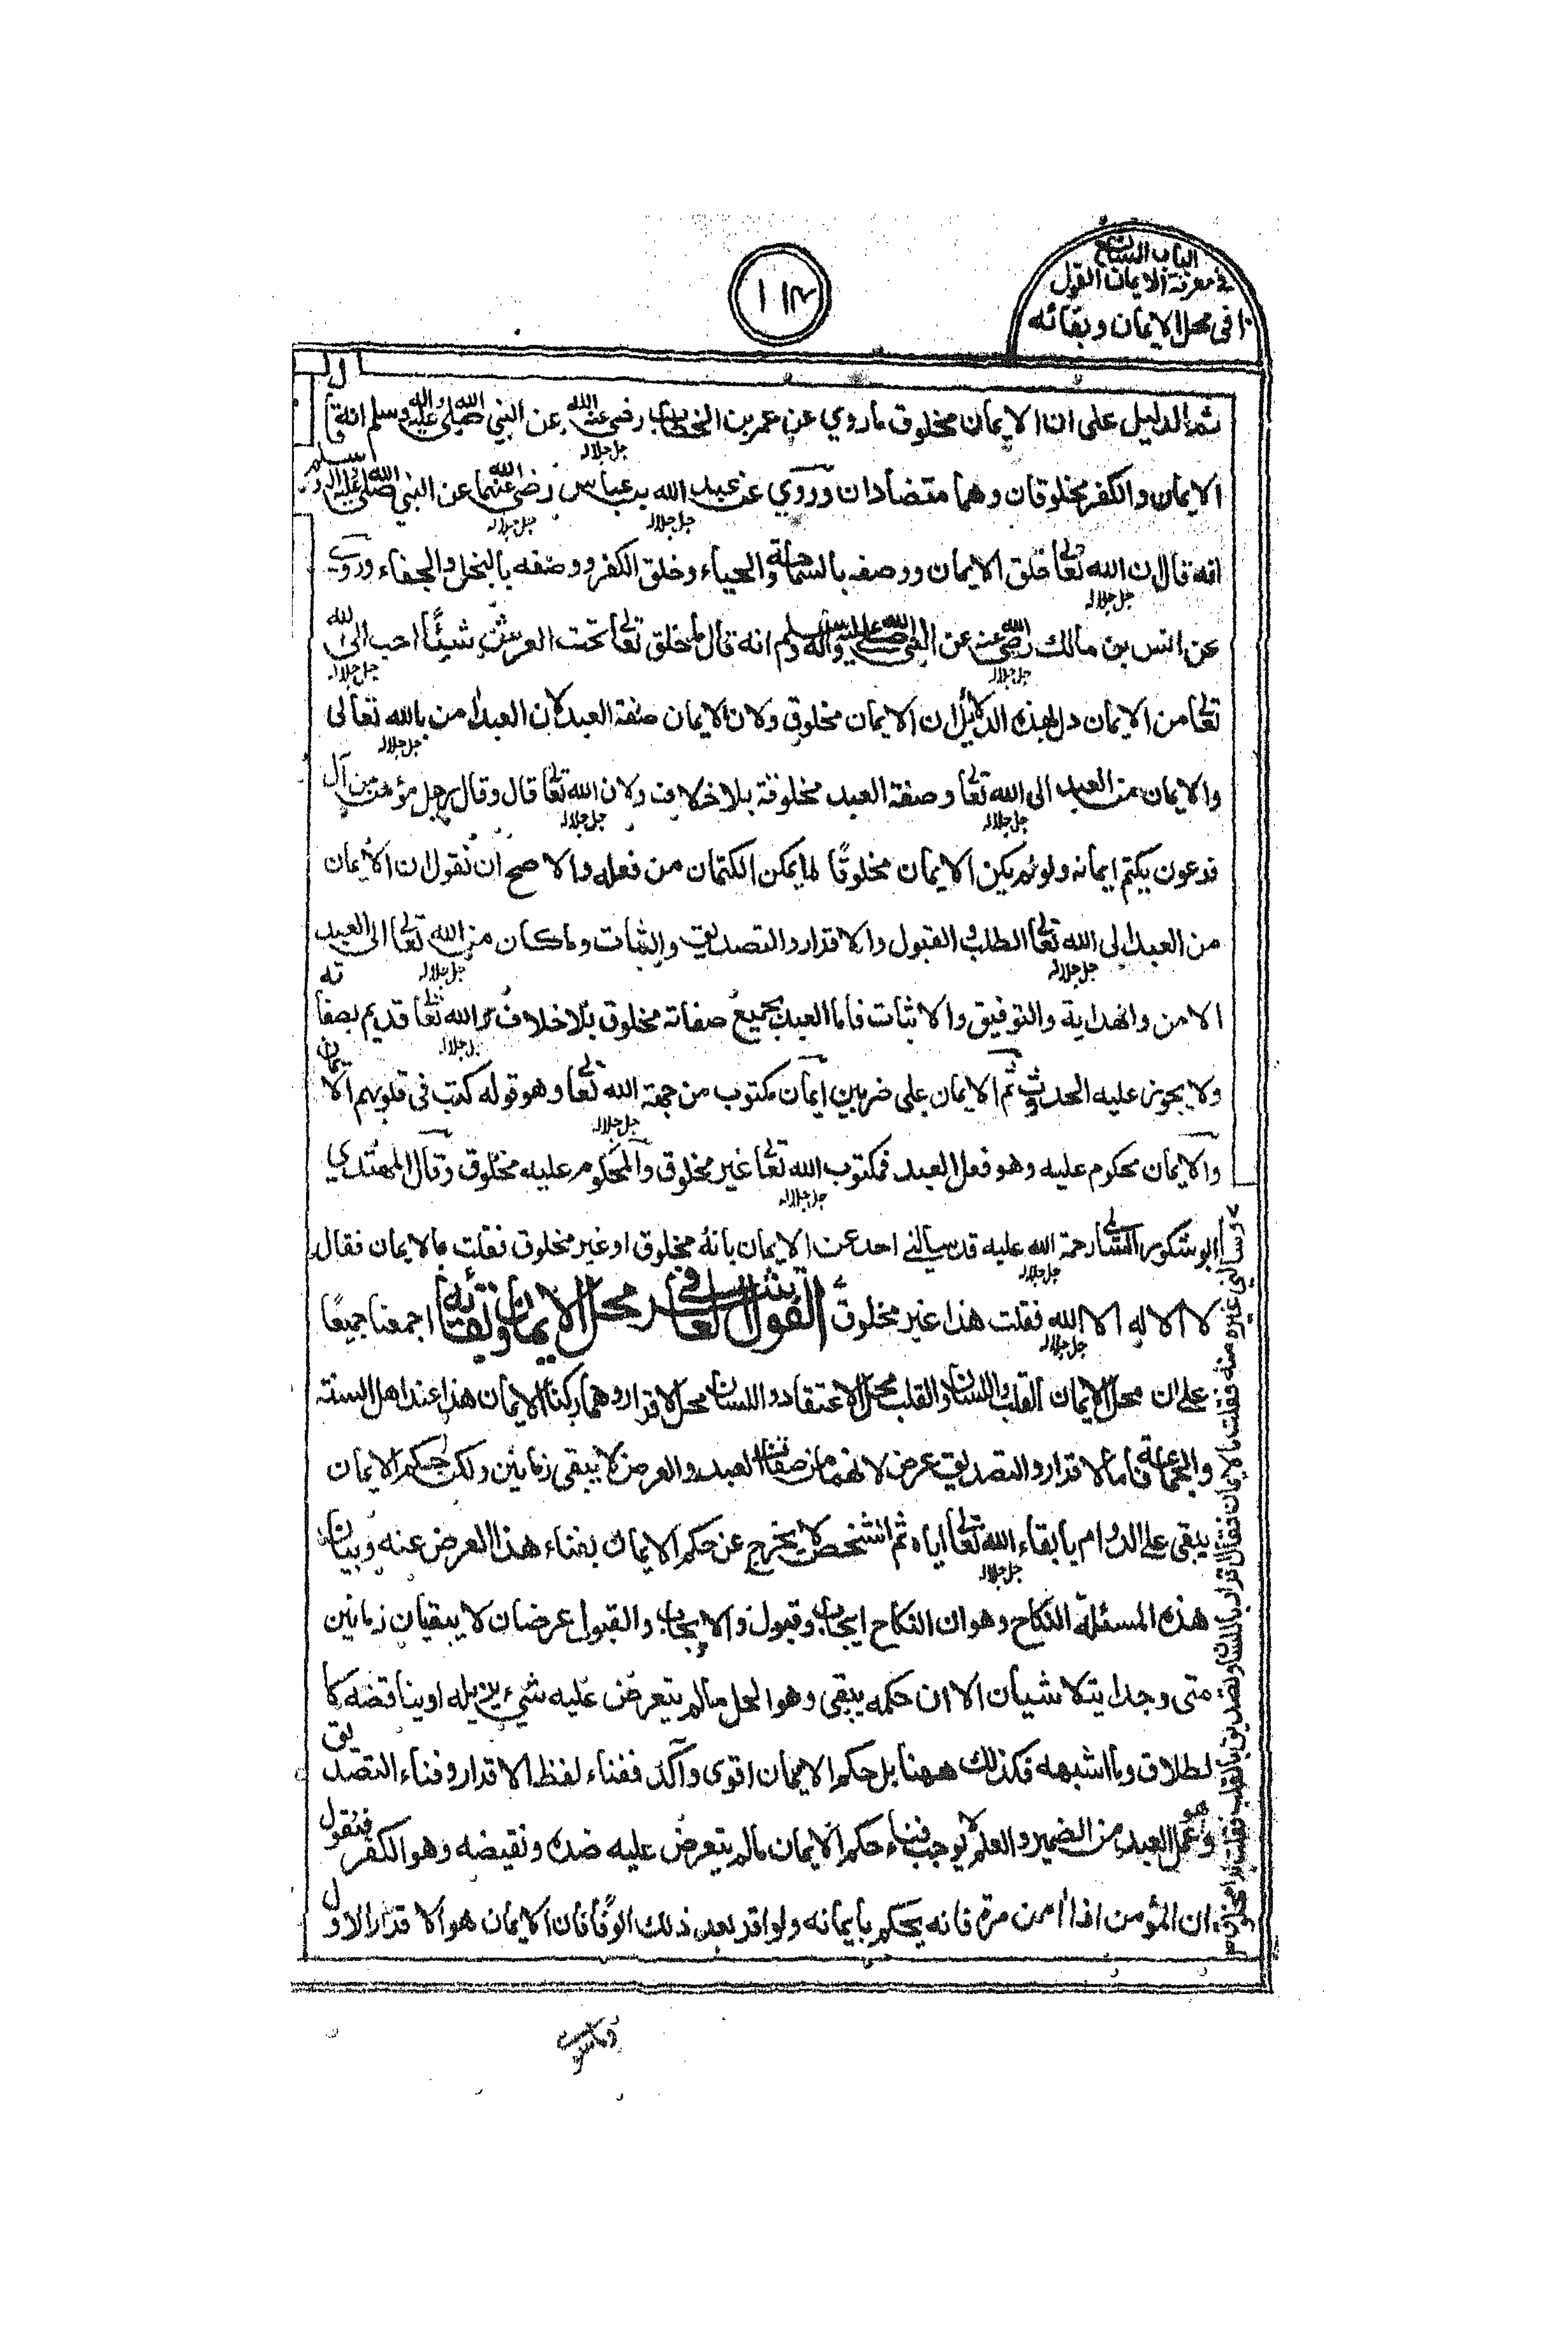 الباب السابع
في معرفة الايمان القول
١٠ في محل الايمان وبقائه
١١٢
ثم الدليل على ان الايمان مخلوق ماروي عن عمر بن الخطاب رضي الله عنه عن النبي صلى الله عليه واله وسلم انه قال
الايمان والكفر مخلوقان وهما متضادان وروي عن عبد الله بن عباس رضي الله عنهما عن النبي صلى الله عليه واله وسلم
انه قال ان الله تعالى خلق الايمان ووصفه بالسماحة والحياء وخلق الكفر ووصفه بالبخل والجفاء وروي
عن انس بن مالك رضي الله عنه عن النبي صلى الله عليه واله وسلم انه قال لم يخلق تعالى تحت العرش شيئًا احب الى الله
تعالى من الايمان دل بهذه الدلائل ان الايمان مخلوق ولان الايمان صفة العبد لان العبد امن بالله تعالى
والايمان من العبد الى الله تعالى وصفة العبد مخلوقة بلا خلاف ولان الله تعالى قال وقال رجل مؤمن من آل
فرعون يكتم ايمانه ولو لم يكن الايمان مخلوقًا لما يمكن الكتمان من فعله والاصح ان نقول ان الايمان
من العبد الى الله تعالى الطلب والقبول والاقرار والتصديق والثبات وما كان من الله تعالى الى العبد
الامن والهداية والتوفيق والاثبات فاما العبد بجميع صفاته مخلوق بلا خلاف والله تعالى قديم بصفاته
ولا يجوز عليه الحدوث ثم الايمان على ضربين ايمان مكتوب من جهة الله تعالى وهو قوله كتب في قلوبهم الايمان
والايمان محكوم عليه وهو فعل العبد فمكتوب الله تعالى غير مخلوق والمحكوم عليه مخلوق وقال المهتدي
ابو شكور السالمي رحمة الله عليه قد سألني احد عن الايمان بانه مخلوق او غير مخلوق فقلت ما الايمان فقال
لا اله الا الله فقلت هذا غير مخلوق القول العاشر في محل الايمان وبقائه اجمعنا جميعًا
على ان محل الايمان القلب واللسان والقلب محل الاعتقاد واللسان محل الاقرار وهما ركنا الايمان هذا عند اهل السنة
والجماعة فاما الاقرار والتصديق عرض لانهما من صفات العبد والعرض لا يبقى زمانين ولكن حكم الايمان
يبقى على الدوام بابقاء الله تعالى اياه ثم الشخص لا يخرج عن حكم الايمان بفناء هذا العرض عنه وبيان
هذه المسئلة النكاح وهو ان النكاح ايجاب وقبول والايجاب والقبول عرضان لا يبقيان زمانين
متى وجدا يتلاشيان الا ان حكمه يبقى وهو الحل مالم يتعرض عليه شيء يزيله او يناقضه كا
لطلاق وما اشبهه فكذلك ههنا بل حكم الايمان اقوى وآكد ففناء لفظ الاقرار وفناء التصديق
وهو عمل العبد من الضمير والعلم لا يوجب فناء حكم الايمان مالم يتعرض عليه ضده ونقيضه وهو الكفر فنقول
ان المؤمن اذا امن مرة فانه يحكم بايمانه ولو اقر بعد ذلك الوفا فان الايمان هو الاقرار الاول
وسألني غيره منه فقلت ما الايمان فقال اقرار باللسان وتصديق بالقلب فقلت هذا مخلوق